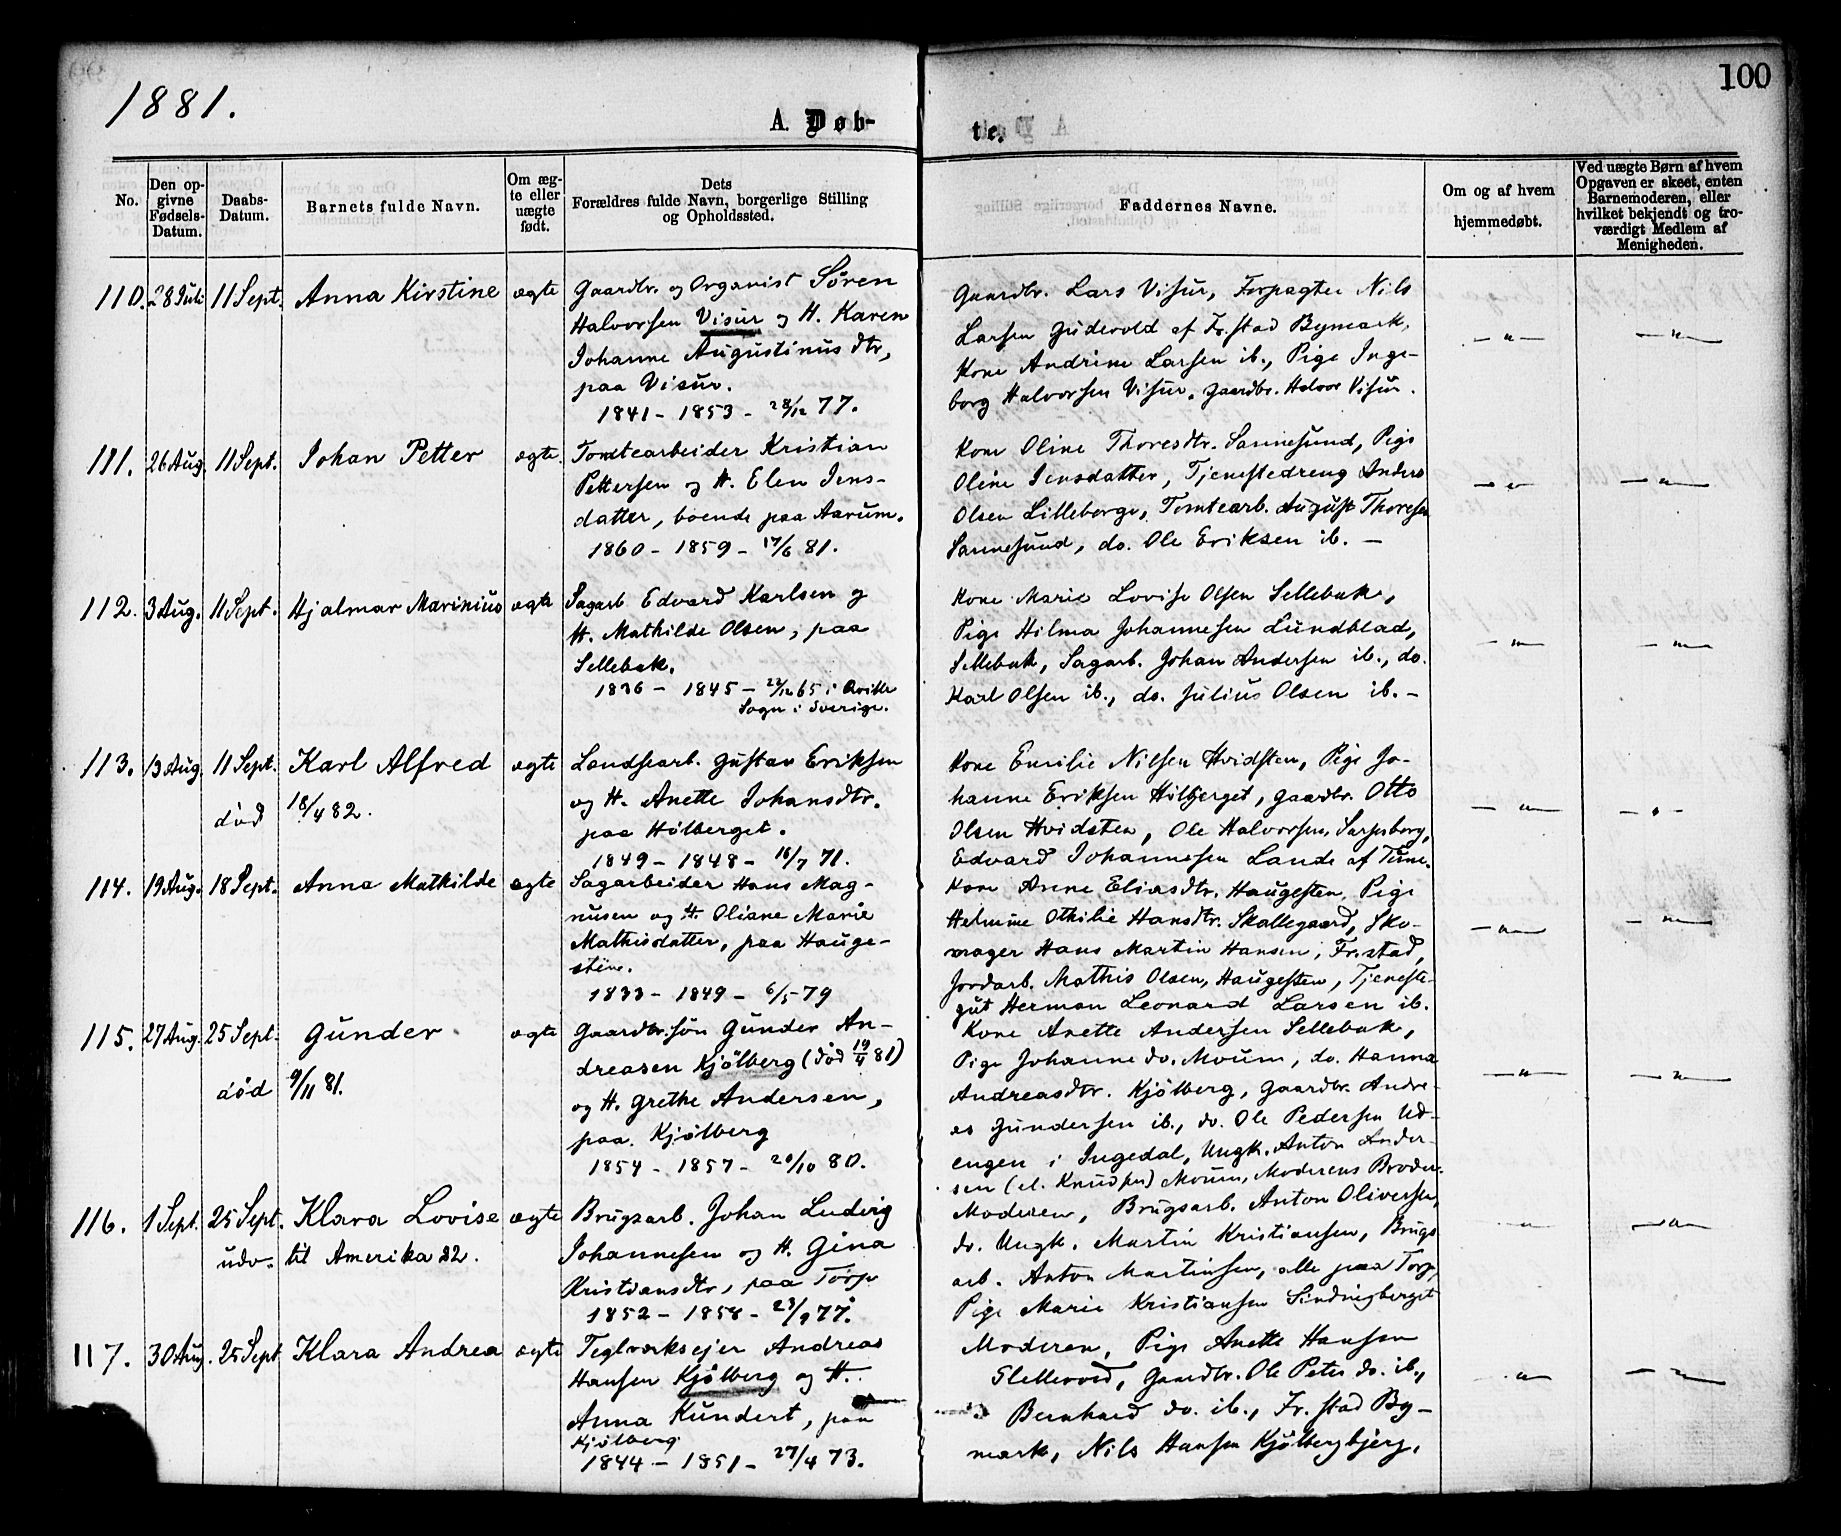 1881.
100
A. Døb-
te.
No.
Den op-
givne
Fødsels-
Datum.
Daabs-
Datum.
Barnets fulde Navn.
Om æg-
te eller
uægte
født.
Dets
Forældres fulde Navn, borgerlige Stilling
og Opholdssted.
Faddernes Navne.
Om og af hvem
hjemmedøbt.
Ved uægte Børn af hvem
Opgaven er skeet, enten
Barnemoderen, eller
hvilket bekjendt og tro-
værdigt Medlem af
Menigheden.
110. 28 Juli 11 Sept. Anna Kirstine ægte
Gaardbr. og Organist Søren
Halvorsen Visur og H. Karen
Johanne Augustinus dtr,
paa Visur.
1841 - 1853 - 28/12 77.
Gaardbr. Lars Visur, Forpagter Nils
Larsen Gudevold af Fr.stad Bymark,
Kone Andrine Larsen ib., Pige Inge-
borg Halvorsen Visur, Gaardbr. Halvor Visur.
— " —
— " —
111. 26 Aug. 11 Sept. Johan Petter ægte.
Tomtearbeider Kristian
Pettersen og H. Elen Jens-
datter, boende paa Aarum.
1860 - 1859 - 17/6 81.
Kone Oline Thoresdtr. Sannesund, Pige
Oline Jensdatter, Tjenestedreng Anders
Olsen Lilleborge, Tomtearb. August Thoresen
Sannesund, do. Ole Eriksen ib. —
— " —
— " —
112. 3 Aug. 11 Sept. Hjalmar Marinius ægte
Sagarb. Edvard Karlsen og
H. Mathilde Olsen, paa
Sellebak.
1836 - 1845 - 22/12 65 i
Sogn i Sverige.
Kone Marie Lovise Olsen Sellebak,
Pige Hilma Johannesen Lundblad,
Sellebak, Sagarb. Johan Andersen ib., do.
Karl Olsen ib., do. Julius Olsen ib. -
— " —
— " —
113. 13 Aug. 11 Sept. Karl Alfred ægte
død 18/4 82.
Landsearb. Gustav Eriksen
og H. Anette Johansdtr.
paa Hølberget.
1849 - 1848 - 16/7 71.
Kone Emilie Nilsen Hvidsten, Pige Jo-
hanne Eriksen Hølberget, Gaardbr. Otto
Olsen Hvidsten, Ole Halvorsen, Sarpsborg,
Edvard Johannesen Lande af Tune.
— " —
— " —
114. 19 Aug. 18 Sept. Anna Mathilde ægte
Sagarbeider Hans Mag-
nusen og H. Oliane Marie
Mathisdatter, paa Hauge-
sten.
1833 - 1849 - 6/5 79
Kone Anne Eliasdtr. Haugesten, Pige
Helmine Othilie Hansdtr. Skallegaard, Sko-
mager Hans Martin Hansen, Fr.stad,
Jordarb. Mathis Olsen, Haugesten, Tjeneste-
gut Herman Leonard Larsen ib.
— " —
— " —
115. 27 Aug. 25 Sept. Gunder ægte
død 9/11 81.
Gaardbr.søn Gunder An-
dreasen Kjølberg (død 19/4 81)
og H. Grethe Andersen,
paa. Kjølberg
1854 - 1857 - 20/10 80.
Kone Anette Andersen Sellebak,
Pige Johanne do. Moum, do. Hanna
Andreasdtr. Kjølberg, Gaardbr. Andre-
as Gundersen ib., do. Ole Pedersen Ud-
engen i Ingedal, Ungk. Anton Ander-
sen (el. Knudsen) Moum, Moderens Broder.
— " —
— " —
116. 1 Sept. 25 Sept. Klara Lovise ægte
udv. til Amerika 82.
Brugsarb. Johan Ludvig
Johannesen og H. Gina
Kristiansdtr, paa Torp
1852 - 1858 - 23/9 77.
Moderen, Brugsarb. Anton Oliversen,
do. Ungk. Martin Kristiansen, Brugs
arb. Anton Martinsen, alle paa Torp,
Pige Marie Kristiansen Sindningberget
— " —
— " —
117. 30 Aug. 25 Sept. Klara Andrea ægte
Teglværksejer Andreas
Hansen Kjølberg og H.
Anna Kundert, paa
Kjølberg
1844 - 1851 - 27/4 73.
Moderen, Pige Anette Hansen
Slettevold, Gaardbr. Ole Peter do. ib.,
Bernhard do. ib., Fr.stad By-
mark, Nils Hansen Kjølbergbjerg.
— " —
— " —